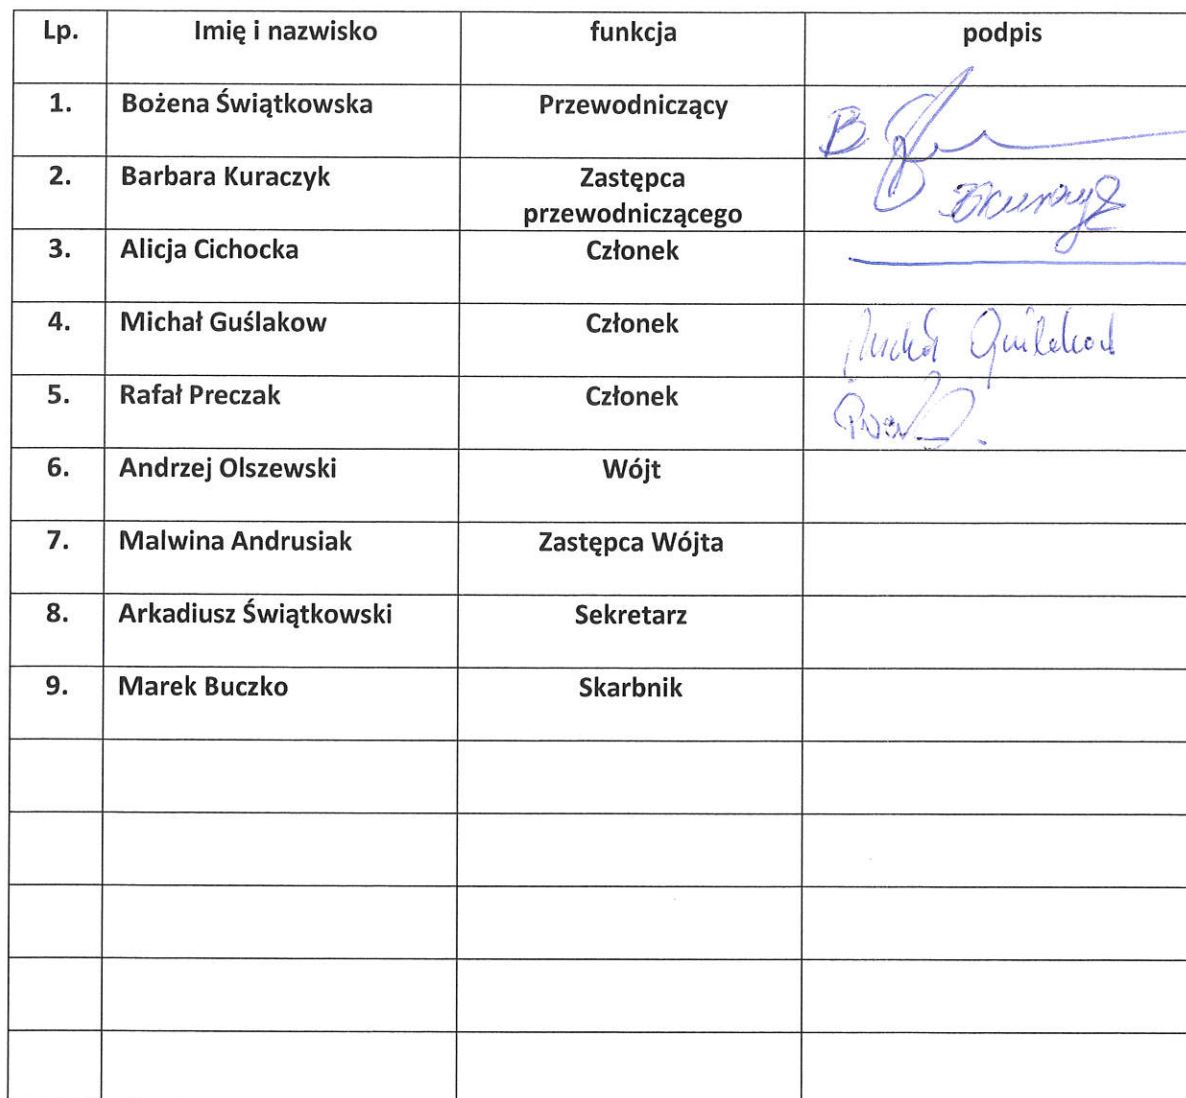 Lp. Imię i nazwisko funkcja podpis
1. Bożena Świątkowska Przewodniczący B
2. Barbara Kuraczyk Zastępca
przewodniczącego
3. Alicja Cichocka Członek
4. Michał Guślakow Członek
5. Rafał Preczak Członek
6. Andrzej Olszewski Wójt
7. Malwina Andrusiak Zastępca Wójta
8. Arkadiusz Świątkowski Sekretarz
9. Marek Buczko Skarbnik